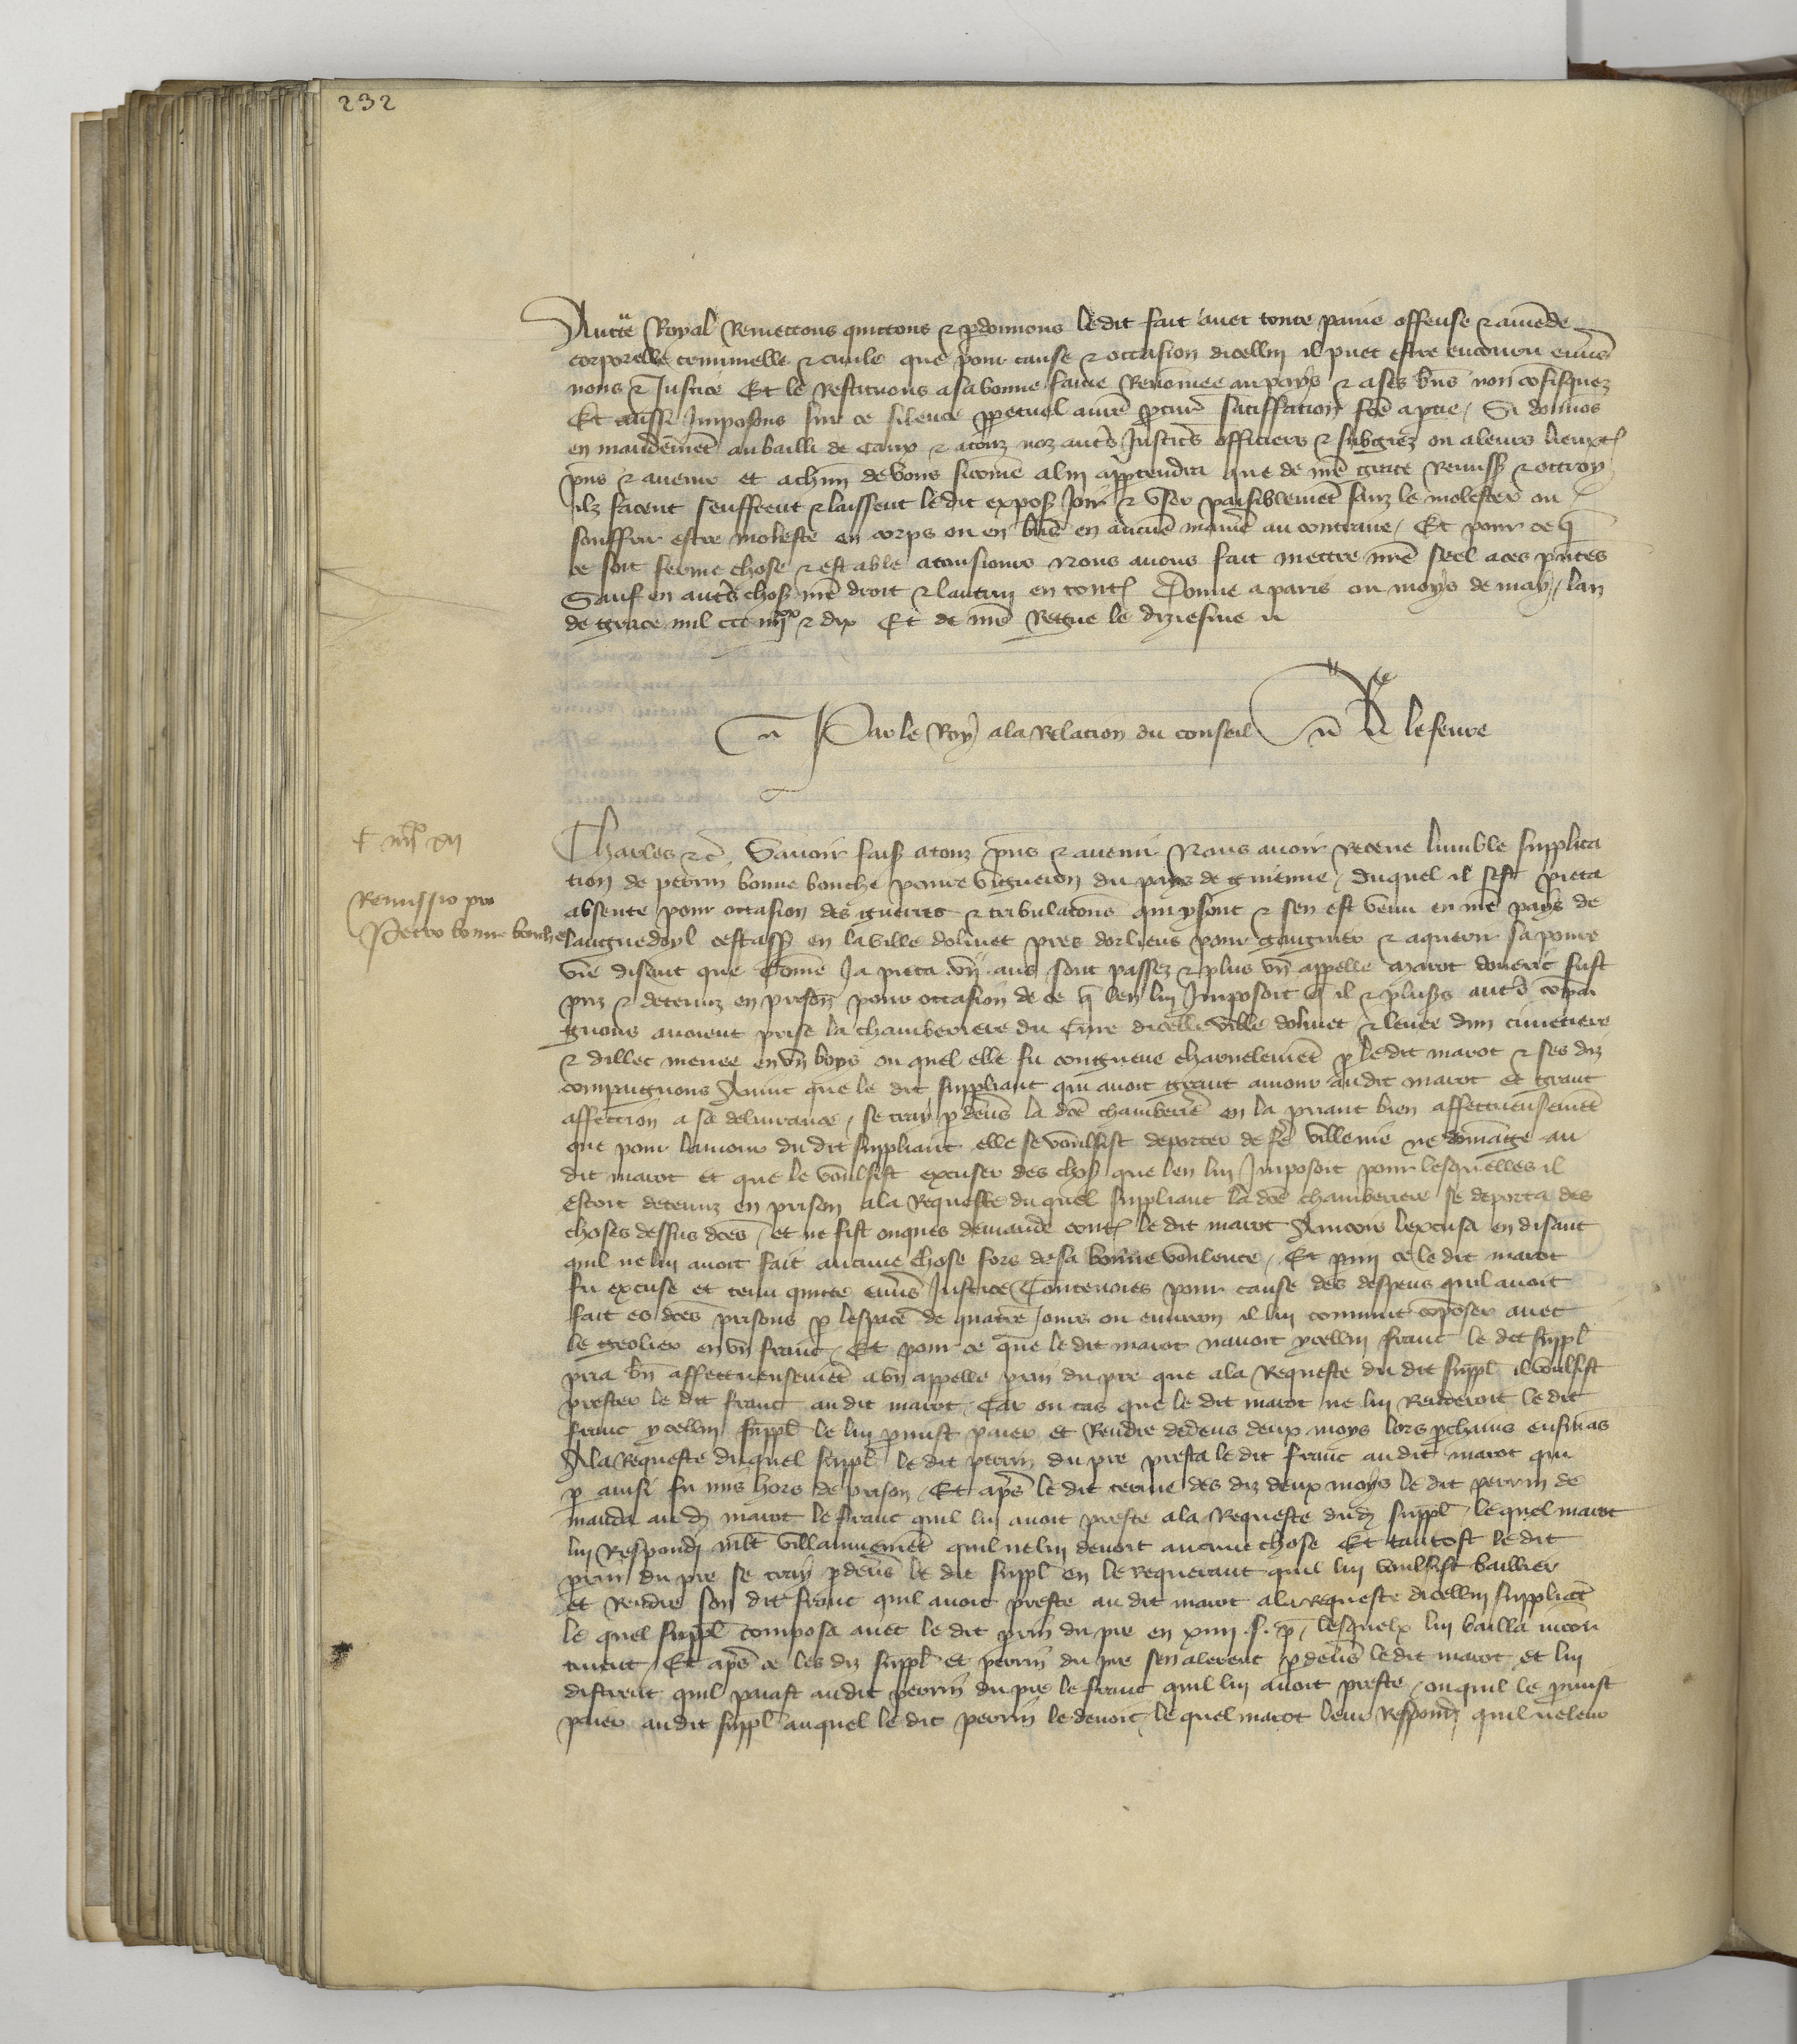 232
Aucte Royal Remettons quittons & pdonnons le dit fait avec toute paine offense & amēde
corporelle criminelle & civile que pour cause & occasion dicellui il puet estre encouru envs
nous & Justice Et le Restituons a sa bonne fame Renōmee au pays & a ses bns non cōfisquez
Et aussi Imposons sur ce silence ppetuel a nre pcur satiffation fce a ptie / Si donnōs
en mandemēt au bailli de Caux & a touz noz autrs Justics officiers & subgiez ou a leurs lieux t
pns & avenir et a chūn de vous sicome a lui apptendra que de nre grace Remiss & ottroy
ilz facent seuffrent & laissent le dit expos Joir & user paisiblemēt sanz le molester ou
souffrir estre moleste en corps ou en bns en aucune manie au contraire / Et pour ce q̄
ce soit ferme chose & estable a tousiours Nous avons fait mettre nre seel a ces pntes
Sauf en autrs chos nre droit & lautrui en tout Donne a paris ou moys de may / lan
de grace mil ccc iiijxx & dix Et de nre Regne le dixiesme
Par le Roy a la Relacion du conseil lefevre
iiijxx xij
Remissio pro
Petro bonne bouche
Charles &c. Savoir fais a touz pns & avenir Nous avoir Receue lumble supplica
tion de perrin bonne bouche povre vigneron du pays de guienne / duquel il sest pieca
absente pour occasion des guerres & tribulacōns qui y sont & sen est venu en nre pays de
languedoyl cestass en la ville dolivet pres dorliens pour gaigner & aquerir sa povre
vie disant que Come Ja pieca vij ans sont passez & plus vn appelle marot doueric fust
priz & detenuz en prison pour occasion de ce q̄ len lui Imposoit q̄ il & plusrs autrs cōpai
gnons avoient prise la chamberiere du Cure dicelle ville dolivet & levee dun cimetiere
& dillec menee en vn boys ou quel elle fu congneue charnelemēt p le dit marot & ses diz
compaignons Avint que le dit suppliant qui avoit grant amour au dit marot et grant
affection a sa delivrance / se tray p devs la dce chamberie en la priant bien affectueusemēt
que pour lamour du dit suppliant elle se voulsist deporter de fe villenie ne dōmaige au
dit marot et que le voulsist excuser des chos que len lui Imposoit pour lesquelles il
estoit detenuz en prison a la Requeste du quel suppliant la dce chamberiere se deporta des
choses dessus dces / et ne fist onques demande contre le dit marot Ancois lexcusa en disant
quil ne lui avoit fait aucune chose fors de sa bonne voulente / Et pmi ce le dit marot
fu excuse et tenu quitte envs Justice Toutevoies pour cause des despens quil avoit
fait es dces prisons p lespace de quatre jours ou environ il lui convint cōposer avec
le geolier en vn franc / Et pour ce que le dit marot navoit ycellui franc le dit suppl
pria bn affectueusemēt a vn appelle prin du pre que a la Requeste du dit suppl il voulsist
prester le dit franc au dit marot Car ou cas que le dit marot ne lui Renderoit le dit
franc ycellui suppl le lui pmist paier et Rendre dedens deux moys lors pchains ensuivās
A la Requeste duquel suppl le dit perrin du pre presta le dit franc au dit marot qui
p ainsi fu mis hors de prison / Et aps le dit terme des diz deux moys le dit perrin de
manda au d marot le franc quil lui avoit preste a la Requeste dud suppl / le quel marot
lui Respondi mlt villainnemēt quil ne lui devoit aucune chose Et tantost le dit
prin du pre se tray p devs le dit suppl en le requerant quil lui voulsist baillier
et Rendre son dit franc quil avoit preste au dit marot a la requeste dicellui suppliāt
le quel suppl composa avec le dit prin du pre en xiiij s. p. / lesquelx lui bailla incon
tinent / Et aps ce les diz suppl et perrin du pre sen alerent p devs le dit marot et lui
distrent quil paiast au dit perrin du pre le franc quil lui avoit preste / ou quil le pmist
paier au dit suppl auquel le dit perrin le devoit / le quel marot leur Respond quil ne leur